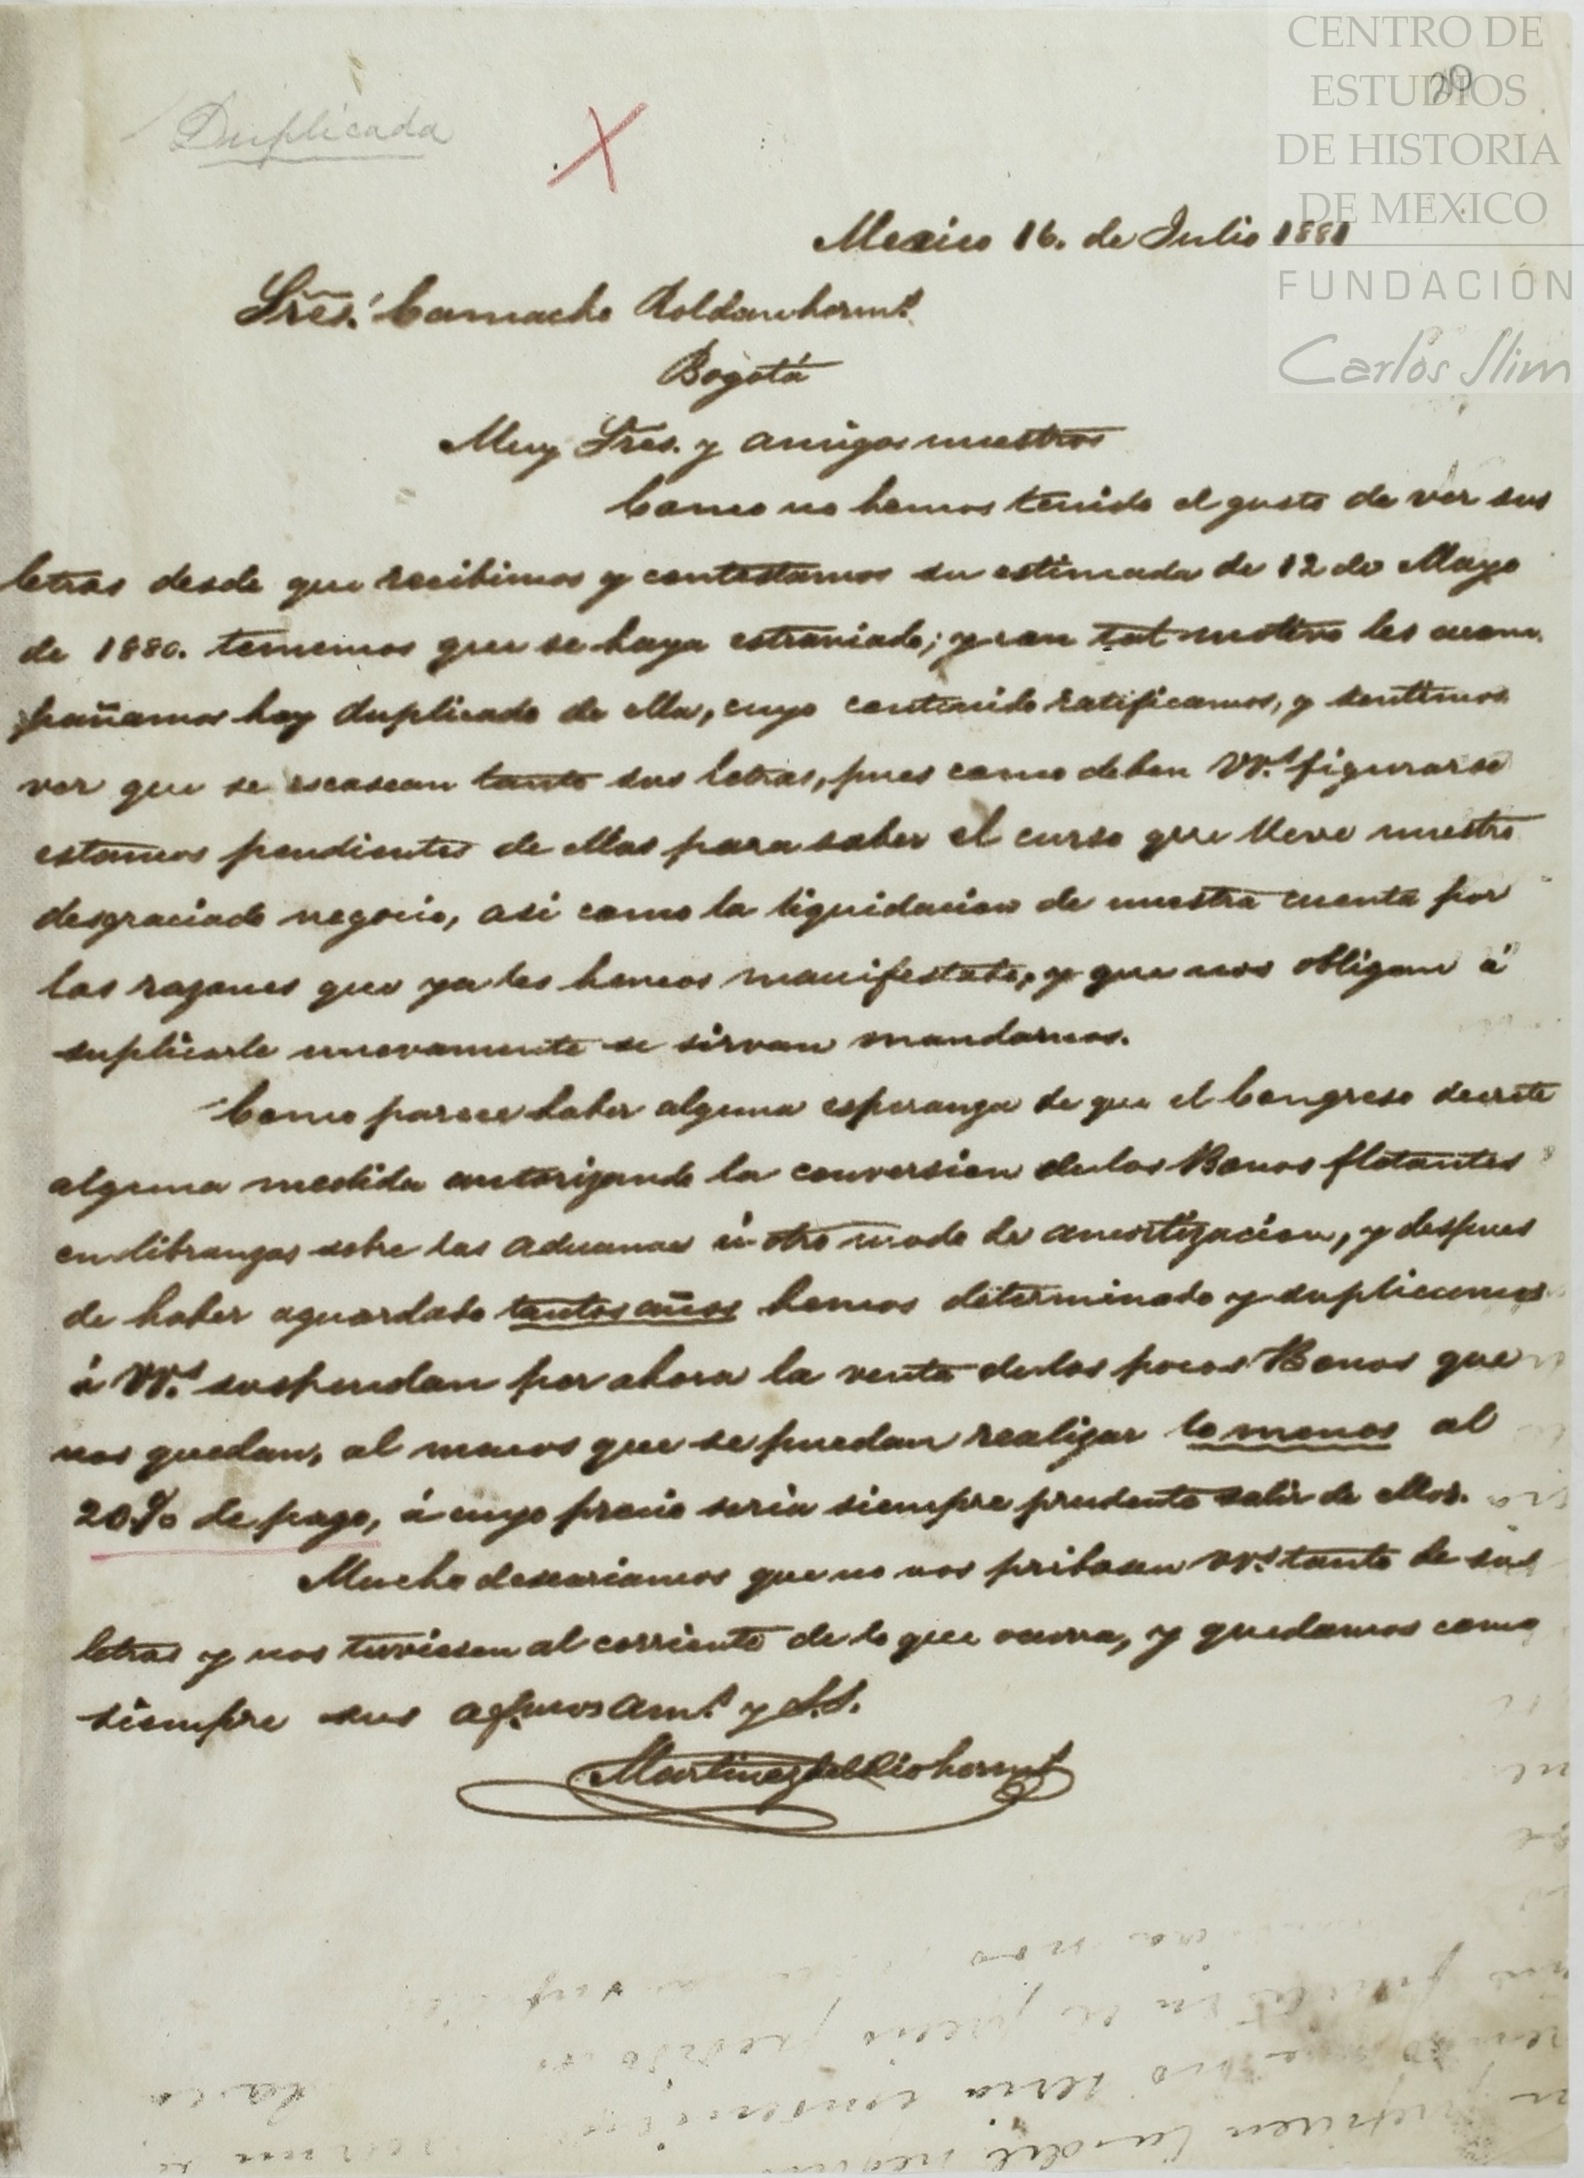 CENTRO DE
ESTUDIOS
DE HISTORIA
DE MEXICO
FUNDACIÓN
Carlos Slim
20
Duplicada
Mexico 16. de Julio 1881
Sres. Camacho Roldan herms.
Bogotá
Muy Sres. y amigos nuestros
Como no hemos tenido el gusto de ver sus
letras desde que recibimos y contestamos su estimada de 12 de Mayo
de 1880. tememos que se haya estraviado; y con tal motivo les acom-
pañamos hoy duplicado de ella, cuyo contenido ratificamos, y sentimos
ver que se escasean tanto sus letras, pues como deben VV.s figurarse
estamos pendientes de ellas para saber el curso que lleve nuestro
desgraciado negocio, asi como la liquidacion de nuestra cuenta por
las razones que ya les hemos manifestado, y que nos obligan á
suplicarle nuevamente se sirvan mandarnos.
Como parece haber alguna esperanza de que el Congreso decrete
alguna medida autorizando la conversion de los Bonos flotantes
en libranzas sobre las aduanas ú otro modo de amortizacion, y despues
de haber aguardado tantos años hemos determinado y suplicamos
á VV.s suspendan por ahora la venta de los pocos Bonos que
nos quedan, al menos que se puedan realizar lo menos al
20% de pago, á cuyo precio seria siempre prudente salir de ellos.
Mucho desearíamos que no nos pribasen VV.s tanto de sus
letras y nos tuviesen al corriente de lo que ocurra, y quedamos como
siempre sus af.mos am.s y S.S.
Martinez del Rio herms